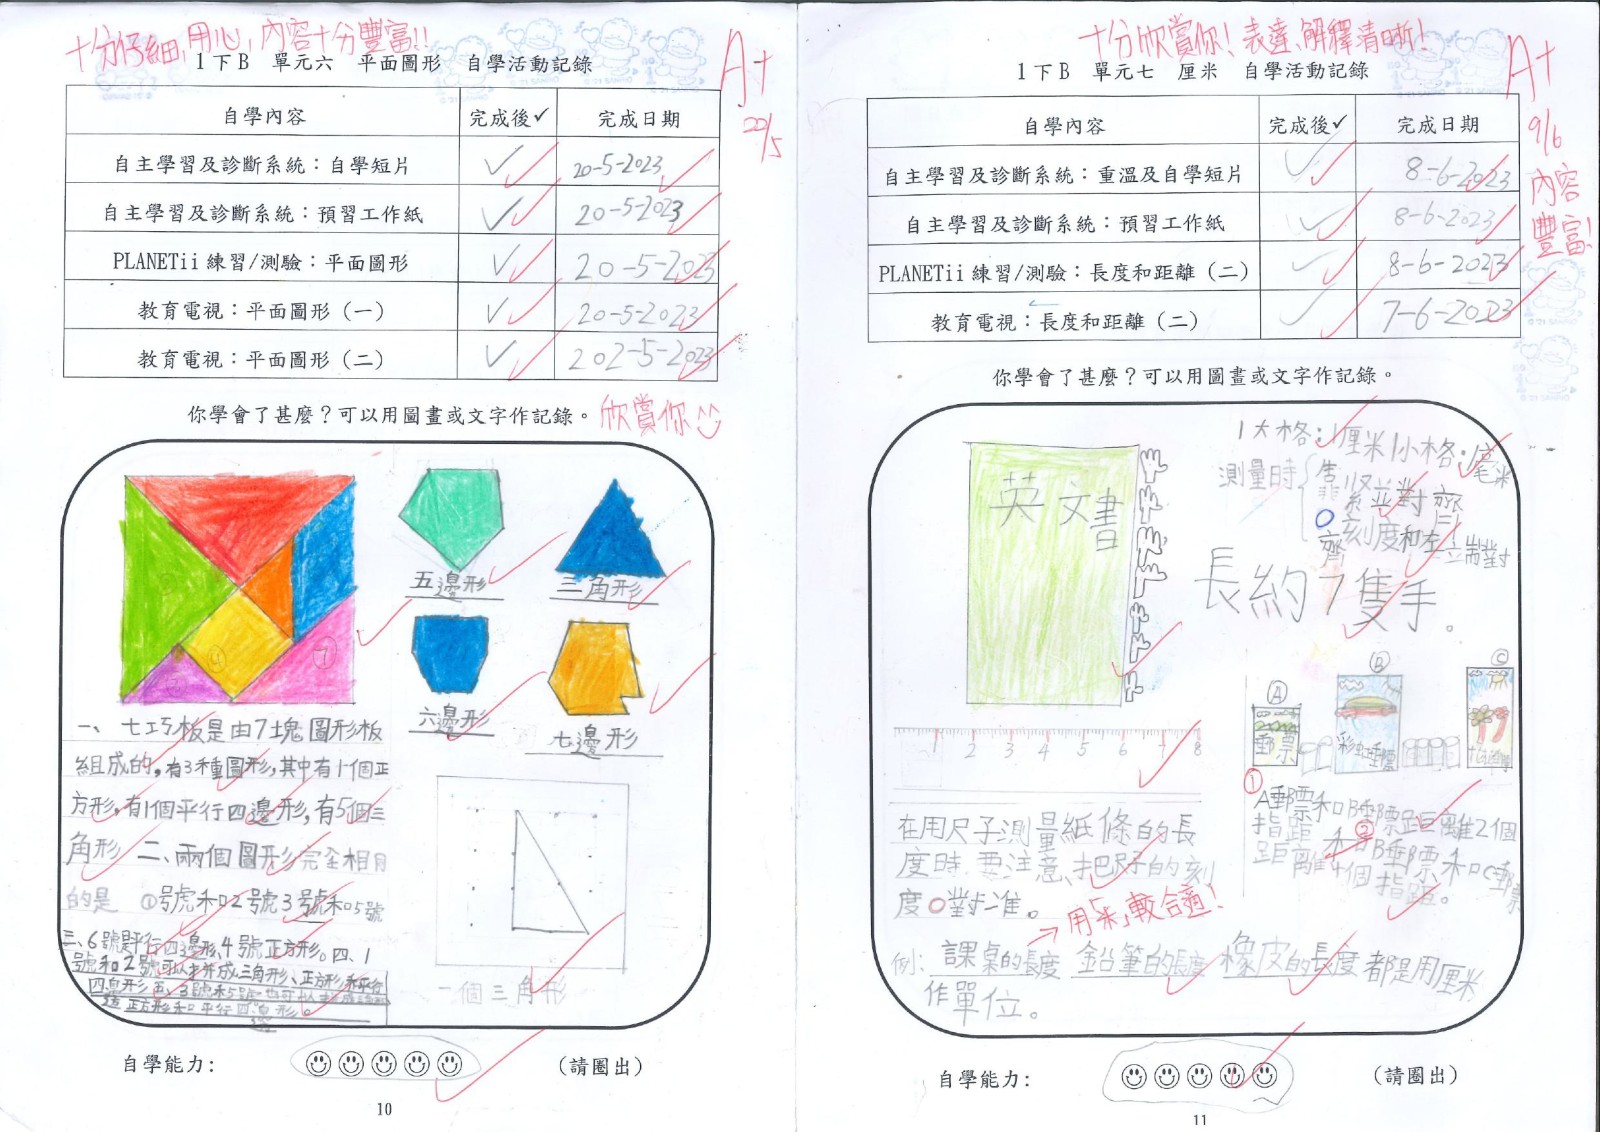 十分仔細,用心,內容十分豐富!!
1下B 單元六 平面圖形 自學活動記錄
A+
20/5
自學內容 完成後✓ 完成日期
自主學習及診斷系統：自學短片 ✓ 20-5-2023
自主學習及診斷系統：預習工作紙 ✓ 20-5-2023
PLANETii 練習/測驗：平面圖形 ✓ 20-5-2023
教育電視：平面圖形（一） ✓ 20-5-2023
教育電視：平面圖形（二） ✓ 202-5-2023
你學會了甚麼？可以用圖畫或文字作記錄。
欣賞你
五邊形
三角形
六邊形
七邊形
④
⑦
一、七巧板是由7塊圖形板
組成的,有3種圖形,其中有1個正
方形,有1個平行四邊形,有5個三
角形 二、兩個圖形完全相同
的是 ①號和2號3號和5號
三、6號是平行四邊形,4號正方形。四、1
號和2號可以拼成三角形、正方形和平行
四邊形
正方形和平行四邊形。
一個三角形
自學能力： （請圈出）
10
十分欣賞你!表達、解釋清晰!
1下B 單元七 厘米 自學活動記錄
A+
9/6
內容
豐富!
自學內容 完成後✓ 完成日期
自主學習及診斷系統：重溫及自學短片 ✓ 8-6-2023
自主學習及診斷系統：預習工作紙 ✓ 8-6-2023
PLANETii 練習/測驗：長度和距離（二） ✓ 8-6-2023
教育電視：長度和距離（二） ✓ 7-6-2023
你學會了甚麼？可以用圖畫或文字作記錄。
1大格:1厘米 1小格:毫米
測量時
緊並對齊
0刻度和左端對
齊
英文書
長約7隻手。
Ⓐ Ⓑ Ⓒ
郵票
1 2 3 4 5 6 7 8
①A郵票和B郵票距離2個
指距 ②和B郵票和C郵票
距離4個指距。
在用尺子測量紙條的長
度時,要注意,把尺子的刻
度0對准。
用「米」較合適!
例:課桌的長度 鉛筆的長度 橡皮的長度 都是用厘米
作單位。
自學能力： （請圈出）
11